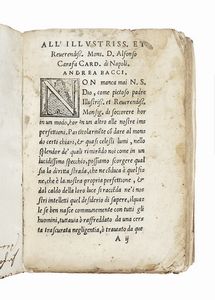 ALL'ILLVSTRISS. ET
Reuerendiss. Mons. D. Alfonso
Carafa CARD. di Napoli.
ANDREA BACCI.
NON manca mai N. S.
Dio, come pietoso padre
Illustriss. et Reuerendiss.
Monsig. di soccorere hor
in un modo, hor in un altro alle nostre im
perfettioni. Particolarmẽte cĩ dare al mon
do certi chiari, & quasi celesti lumi, nello
splendor de' quali rimirãdo noi come in un
lucidissimo specchio, possiamo scorgere qual
sia la diritta strada, che ne cõduca à quel fi
ne, che è la nostra propria perfettione, &
dal caldo della loro luce si racceda ne' no
stri intelletti quel desiderio di sapere, ilqua
le se ben nasce communemente con tutti gli
huomini, tuttauia ò raffreddato da una cer
ta trascurata negligentia, ò trauiato da que
A ij